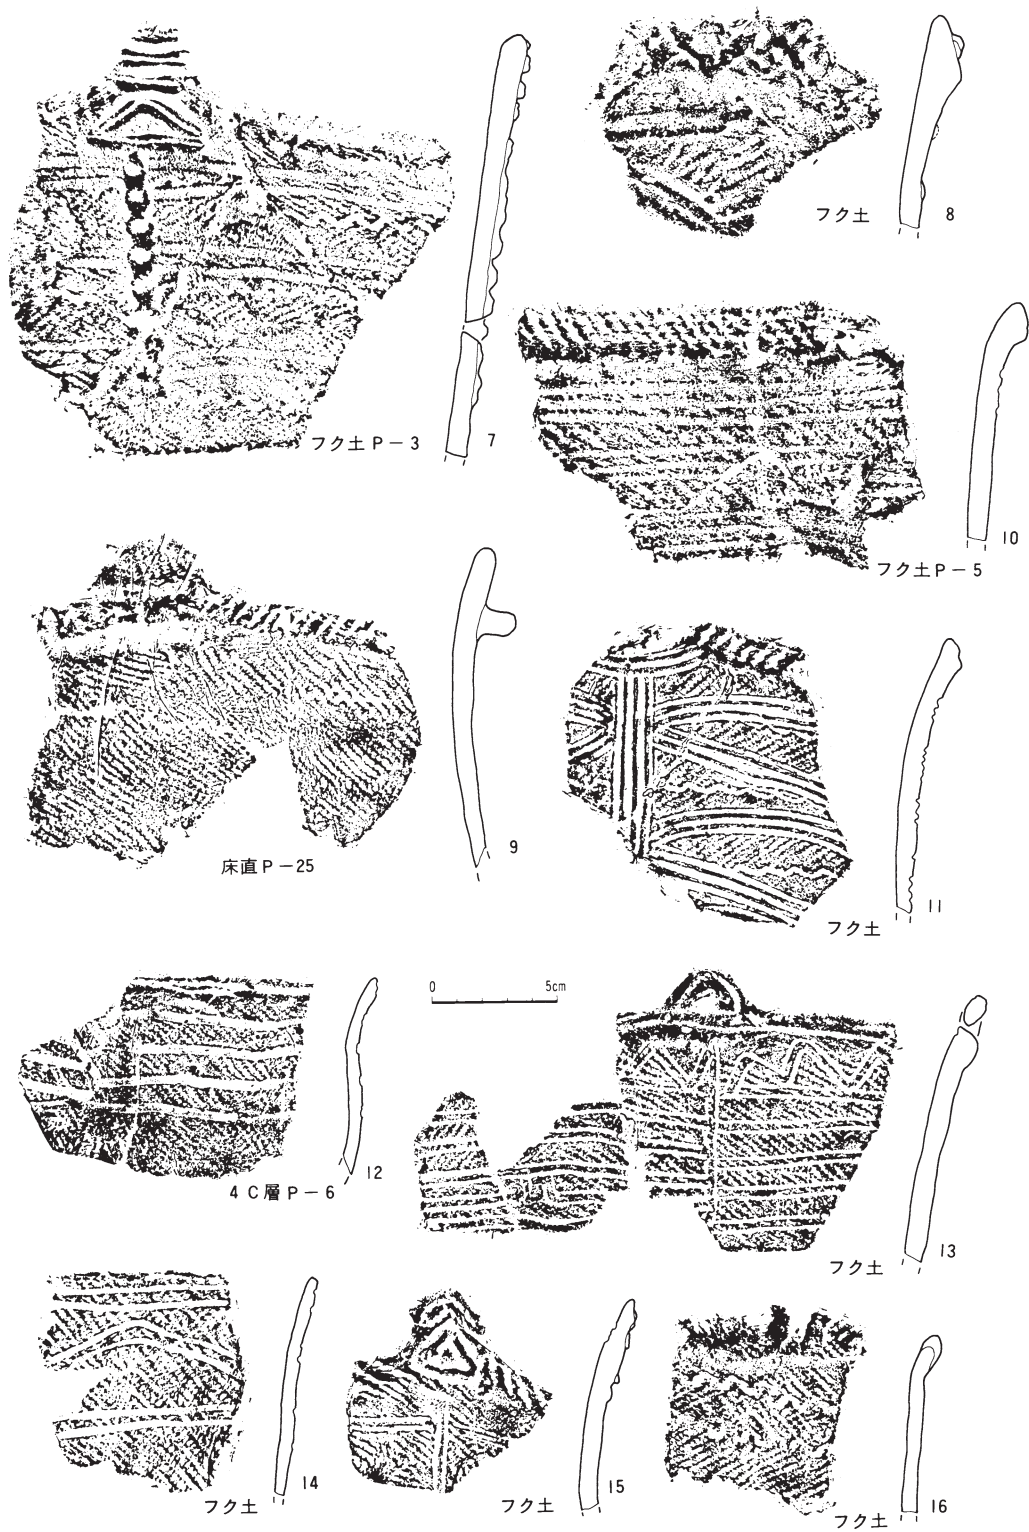 フク土 P-3 7
フク土 8
フク土 P-5 10
床直 P-25 9
フク土 11
0 5cm
4C層 P-6 12
フク土 13
フク土 14
フク土 15
フク土 16